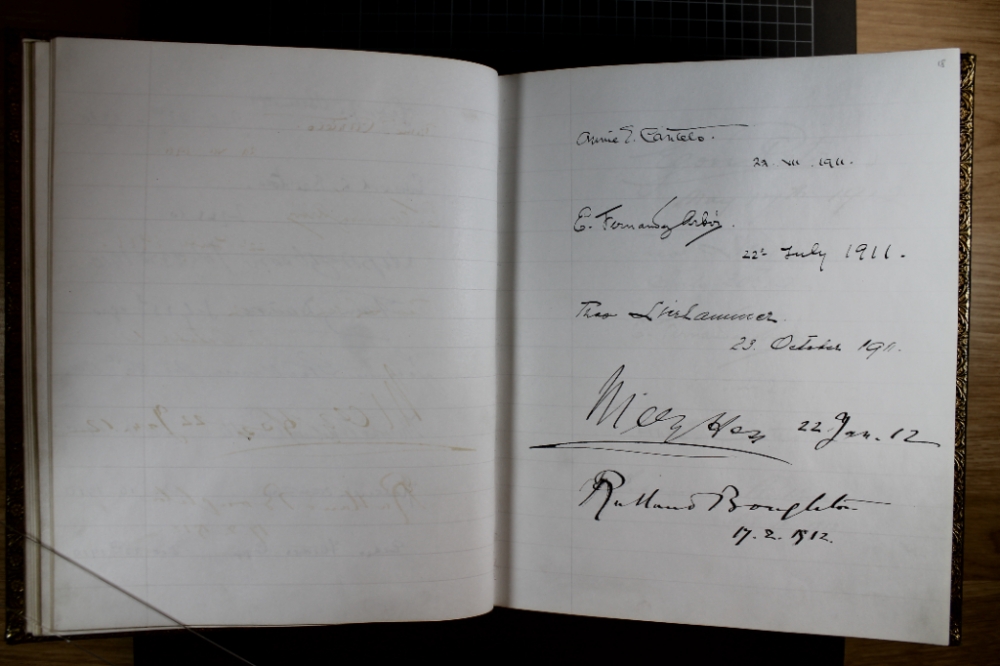 18
Annie E. Cantelo.
22. VII. 1911.
E. Fernandez Arbós.
22d July 1911.
Theo Lierhammer.
23. October 1911.
Myra Hess 22 Jan. 12
Rutland Boughton
17. 2. 1912.